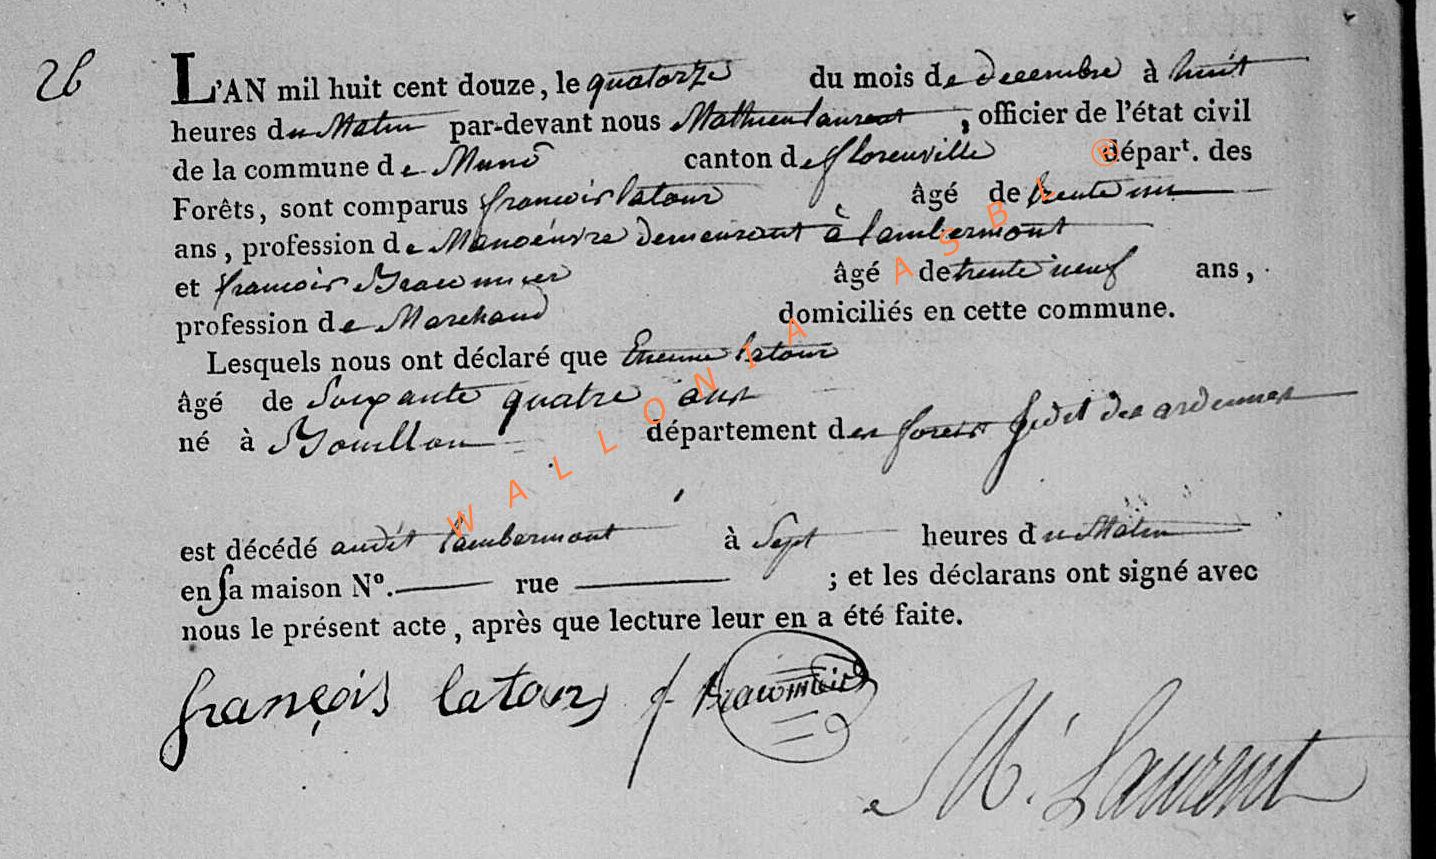 26
L'AN mil huit cent douze, le quatorze du mois de decembre à huit
heures du Matin par-devant nous Mathieu laurent, officier de l'état civil
de la commune de Muno canton de florenville départ. des
Forêts, sont comparus francois latour âgé de trente un
ans, profession de Manoeuvre demeurant à lambermont
et francois âgé de trente neuf ans,
profession de Marchand domiciliés en cette commune.
Lesquels nous ont déclaré que Etienne latour
âgé de Soixante quatre ans
né à Bouillon département des forets des ardennes
est décédé audit lambermont à Sept heures du Matin
en Sa maison N°. rue ; et les déclarans ont signé avec
nous le présent acte, après que lecture leur en a été faite.
françois latour f.
M. Laurent
WALLONIA ASBL ®